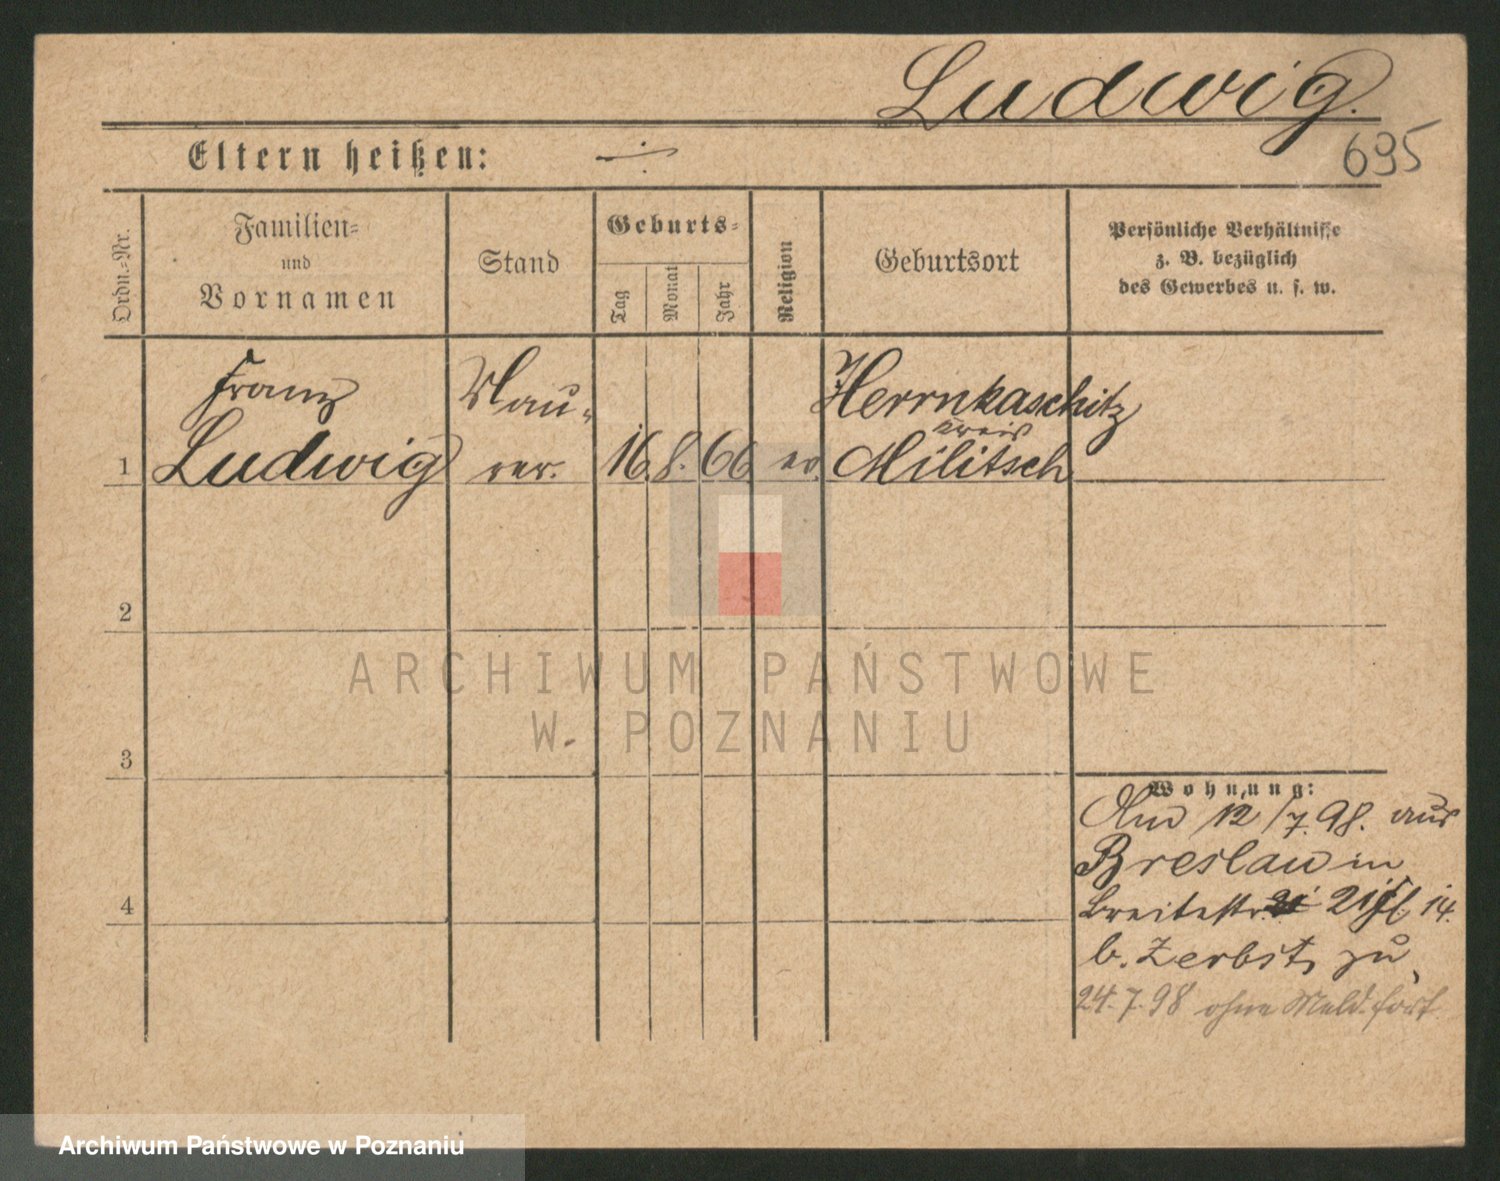 Ludwig.
695
Eltern heißen:
Ordn.-Nr.
Familien-
und
Vornamen
Stand
Geburts-
Tag
Monat
Jahr
Religion
Geburtsort
Persönliche Verhältnisse
z. B. bezüglich
des Gewerbes u. s. w.
1
Franz
Ludwig
Mau-
rer.
16. 8. 66
ev.
Herrnkaschitz
Kreis
Militsch
2
3
4
Wohnung:
12/7. 98. aus
Breslau in
Breitestr. 21 14.
b. Zerbst, zu
24. 7. 98 ohne Meld. fort
ARCHIWUM PAŃSTWOWE
W POZNANIU
Archiwum Państwowe w Poznaniu